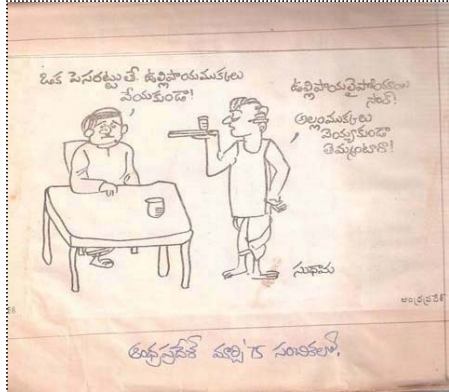 ఒక పెసరట్టుతే. ఉల్లిపాయముక్కలు
వేయకుండా!
ఉల్లిపాయలైపోయాయి
సార్!
అల్లంముక్కలు
వెయ్యకుండా
తెమ్మంటారా!
సుధామ
ఆంధ్రప్రదేశ్
ఆంధ్రప్రదేశ్ మార్చి' 75 సంచికలో.